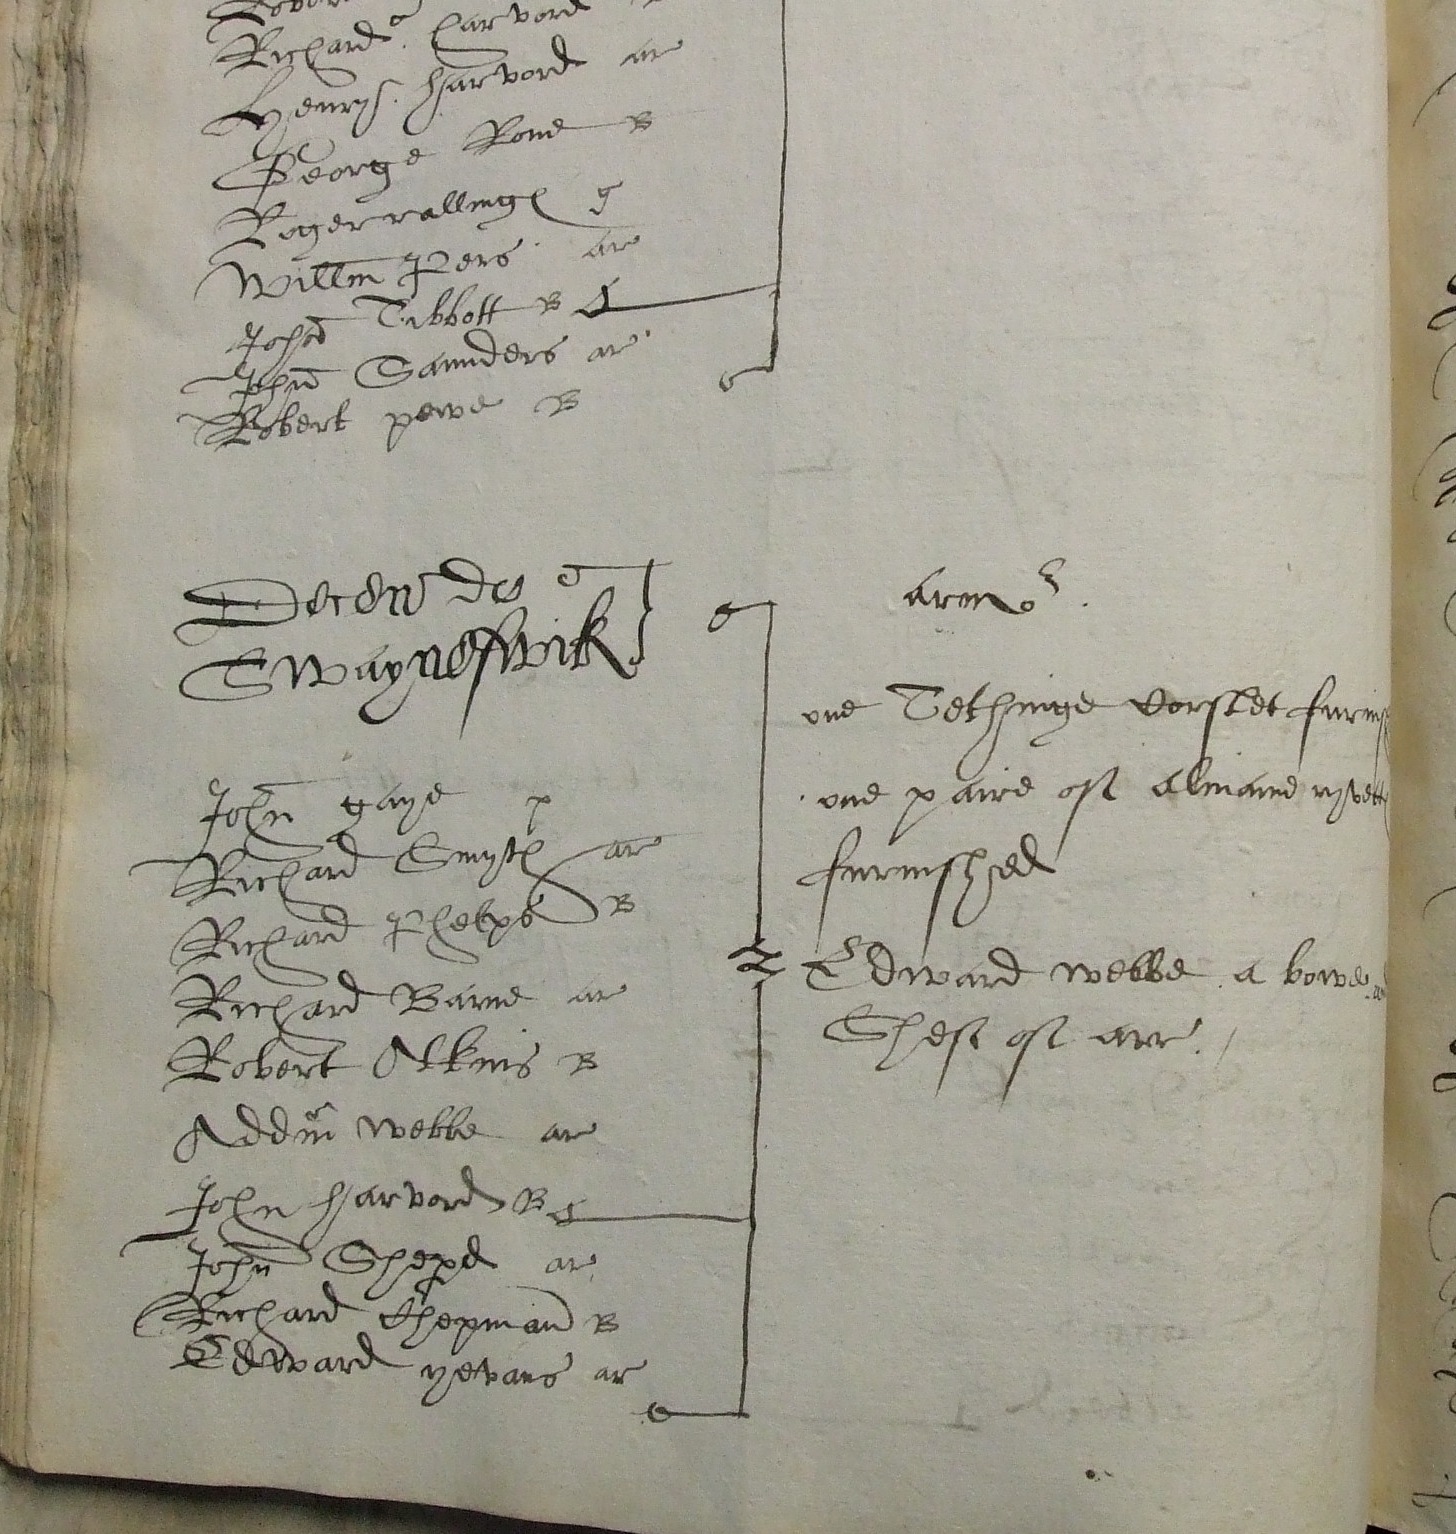 Richard harvord
Henry harvord ar
George Rone B
Roger rallings g
Willm Pers ar
John Tibbott B
John Saunders ar
Robert pewe B
Decen de
Swayneswick
John gaye p
Richard Smyth ar
Richard Phelps B
Richard Barne ar
Robert Atkins B
Addm webbe ar
John harvord B
John Shepd ar
Richard Chepman B
Edward yevans ar
armor
one Tethinge Corslet furnish
one paire of Almaine ryvetts
furnished
Edward webbe a bowe and
Sheff of arr